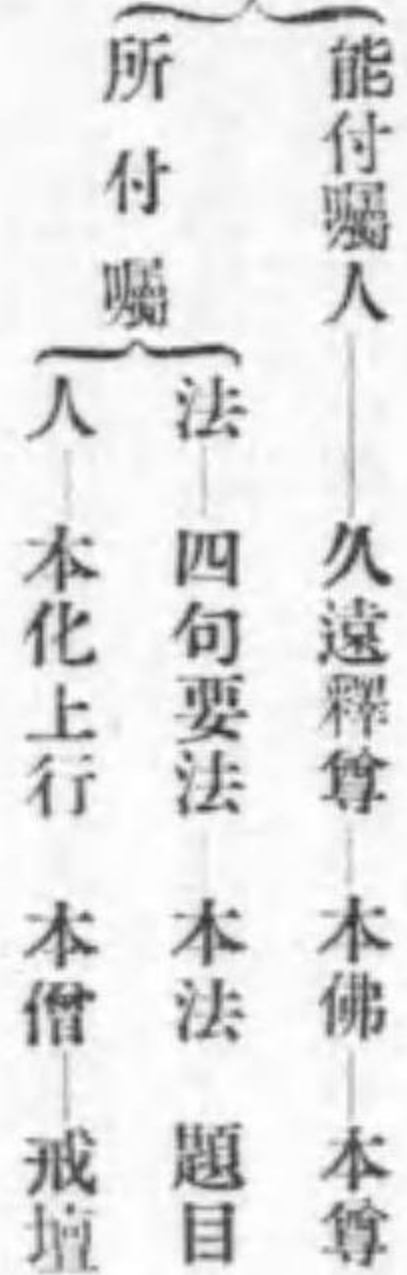 能付囑人―久遠釋尊―本佛―本尊
所付囑
法―四句要法―本法 題目
人―本化上行 本僧―戒壇